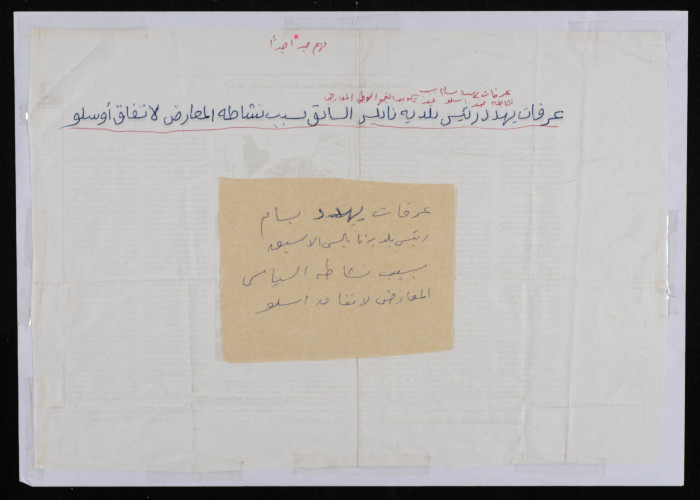 مهم جداً جداً
عرفات يهدد بسام
نشاطه ضد اسلو
عرفات يهدد رئيس بلدية نابلس السابق بسبب نشاطه المعارض لاتفاق أوسلو
عرفات يهدد بسام
رئيس بلدية نابلس الاسبق
بسبب نشاطه السياسي
المعارض لاتفاق اسلو